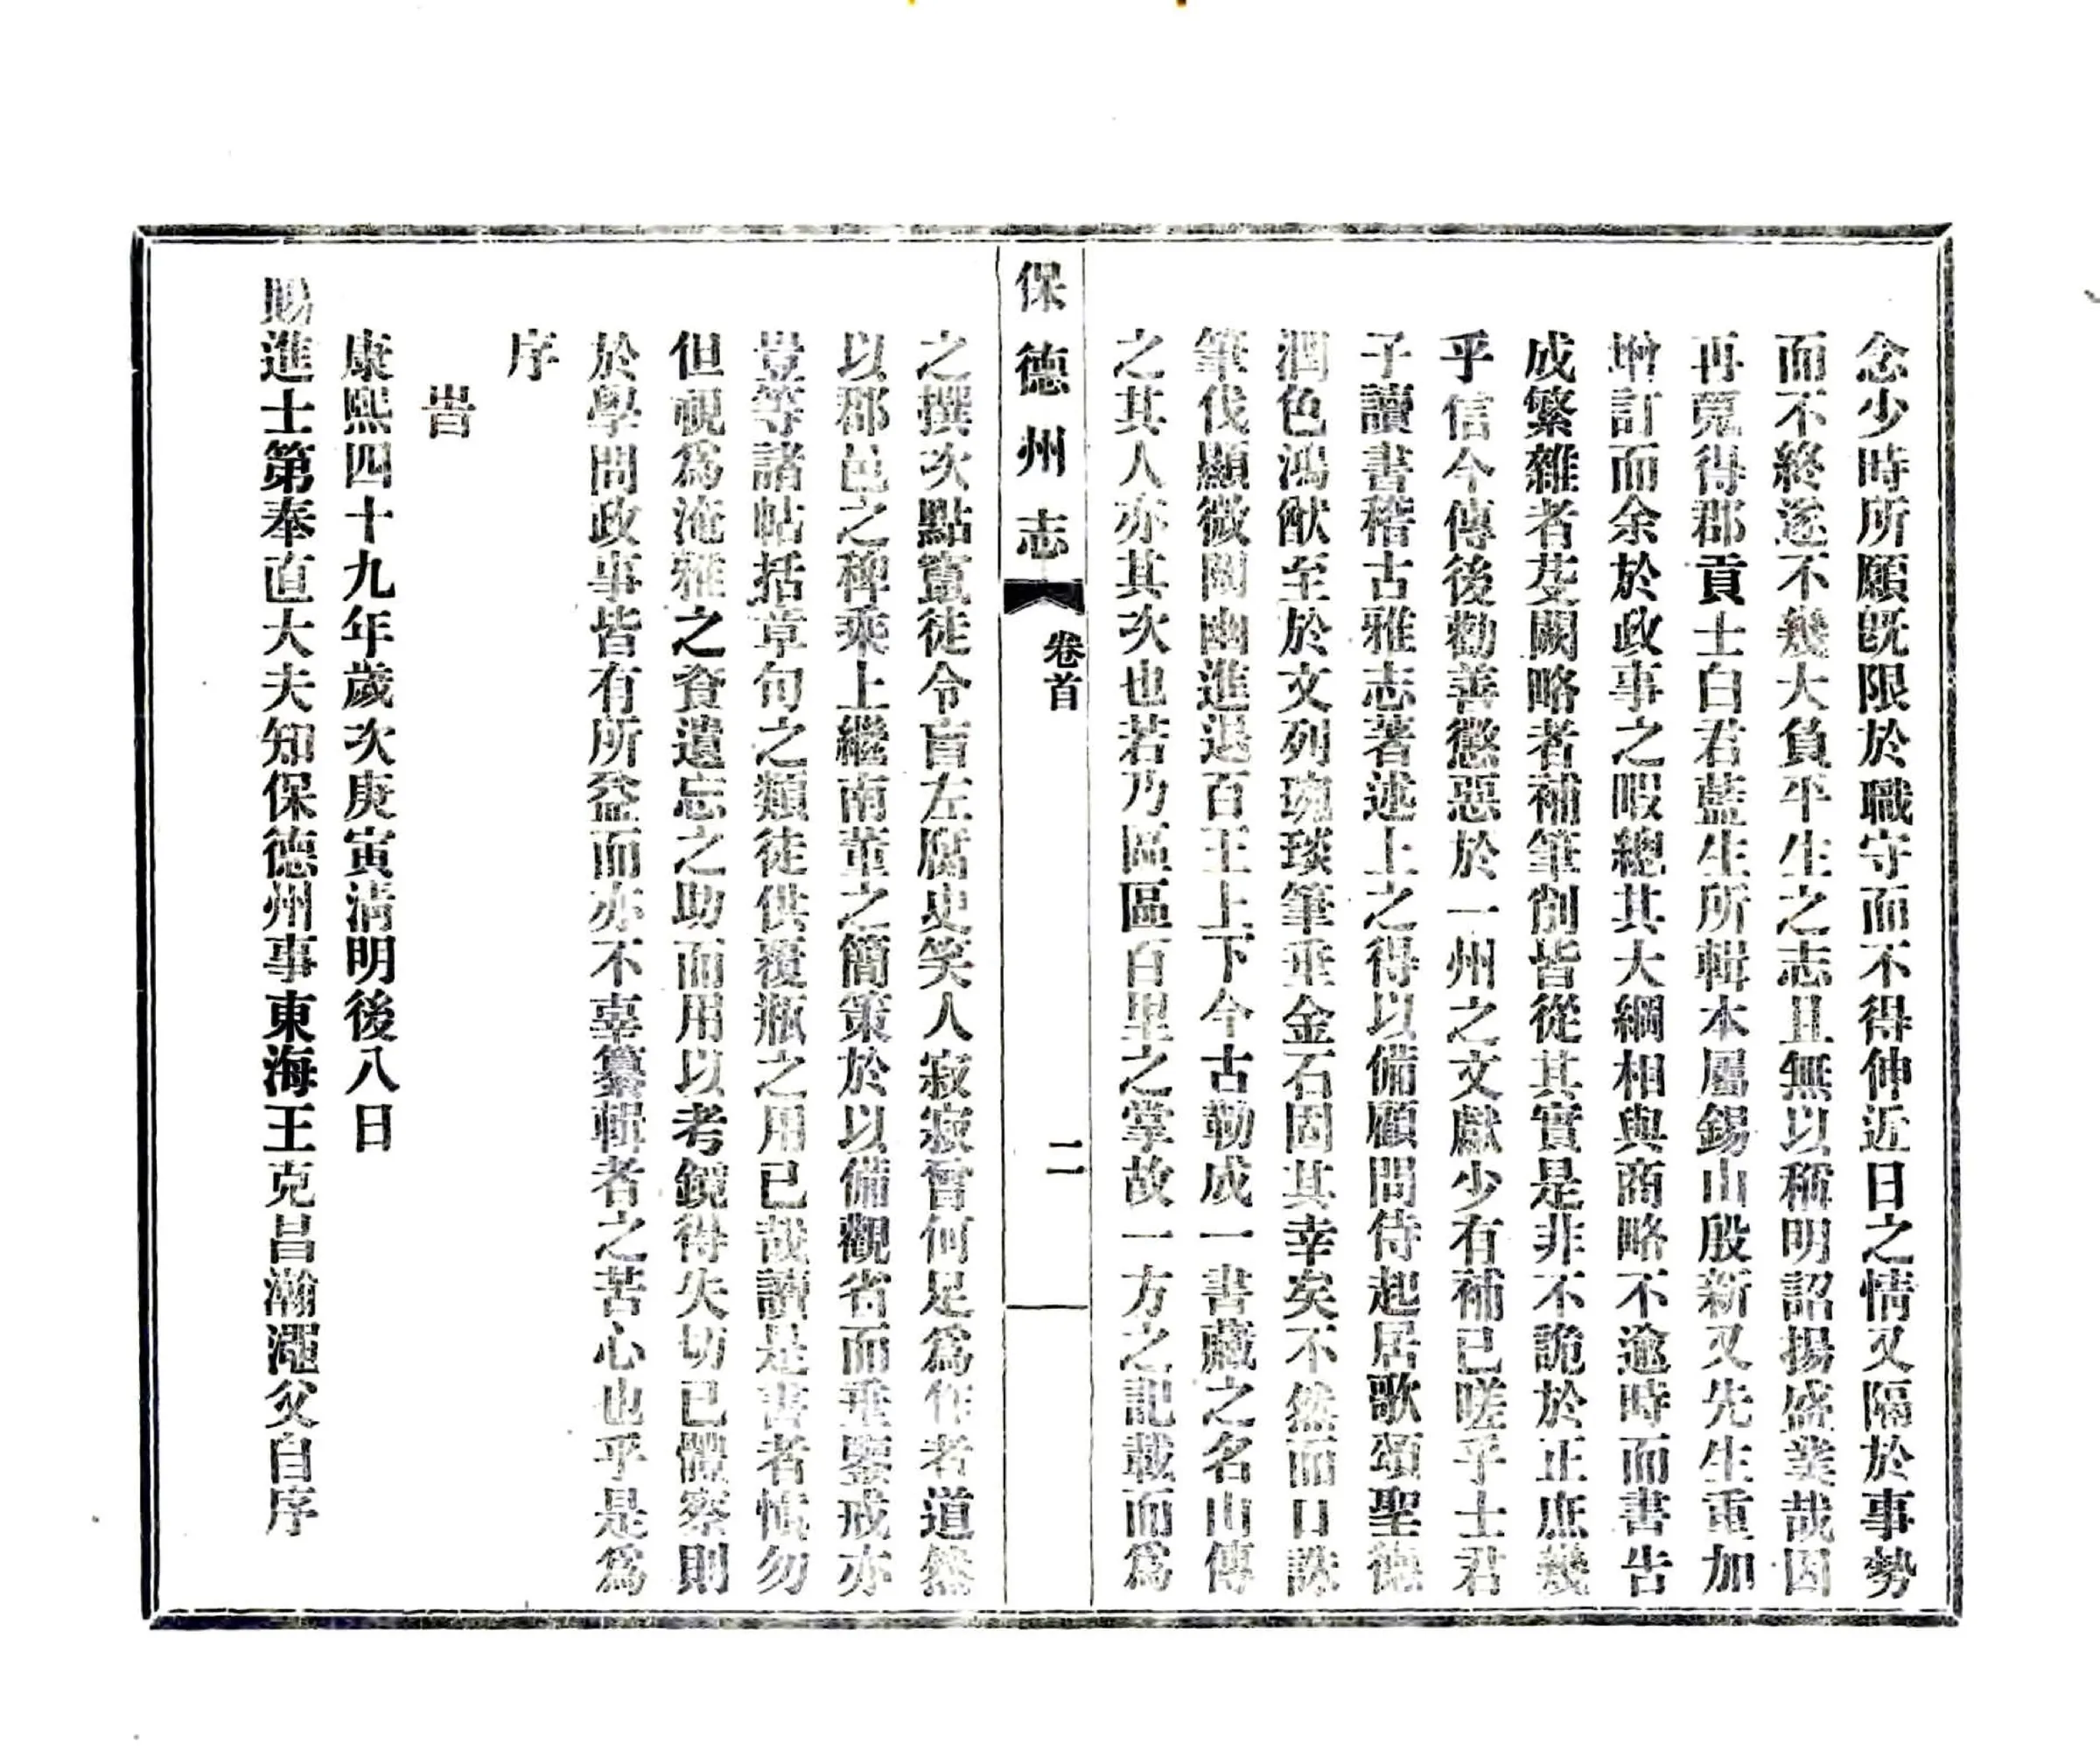 念少時所願既限於職守而不得伸近日之情又隔於事勢
而不終遂不幾大負平生之志且無以稱明詔揚盛業哉因
再蒐得郡貢士白君藍生所輯本屬錫山殷新又先生重加
增訂而余於政事之暇總其大綱相與商略不逾時而書告
成繁雜者芟闕略者補筆削皆從其實是非不詭於正庶幾
乎信今傳後勸善懲惡於一州之文獻少有補已嗟乎士君
子讀書稽古雅志著述上之得以備顧問侍起居歌頌聖德
潤色鴻猷至於文列琬琰筆垂金石固其幸矣不然而口誅
筆伐顯微闡幽進退百王上下今古勒成一書藏之名山傳
之其人亦其次也若乃區區百里之掌故一方之記載而爲
保德州志
卷首
二
之撰次點竄徒令盲左腐史笑人寂寂嘗何足爲作者道然
以郡邑之稗乘上繼南董之簡策於以備觀省而垂鑒戒亦
豈等諸帖括章句之類徒供覆瓶之用已哉讀是書者愼勿
但視爲淹雅之資遺忘之助而用以考鏡得失切已體察則
於學問政事皆有所益而亦不辜纂輯者之苦心也乎是爲
序
旹
康熙四十九年歲次庚寅清明後八日
賜進士第奉直大夫知保德州事東海王克昌瀚澠父自序